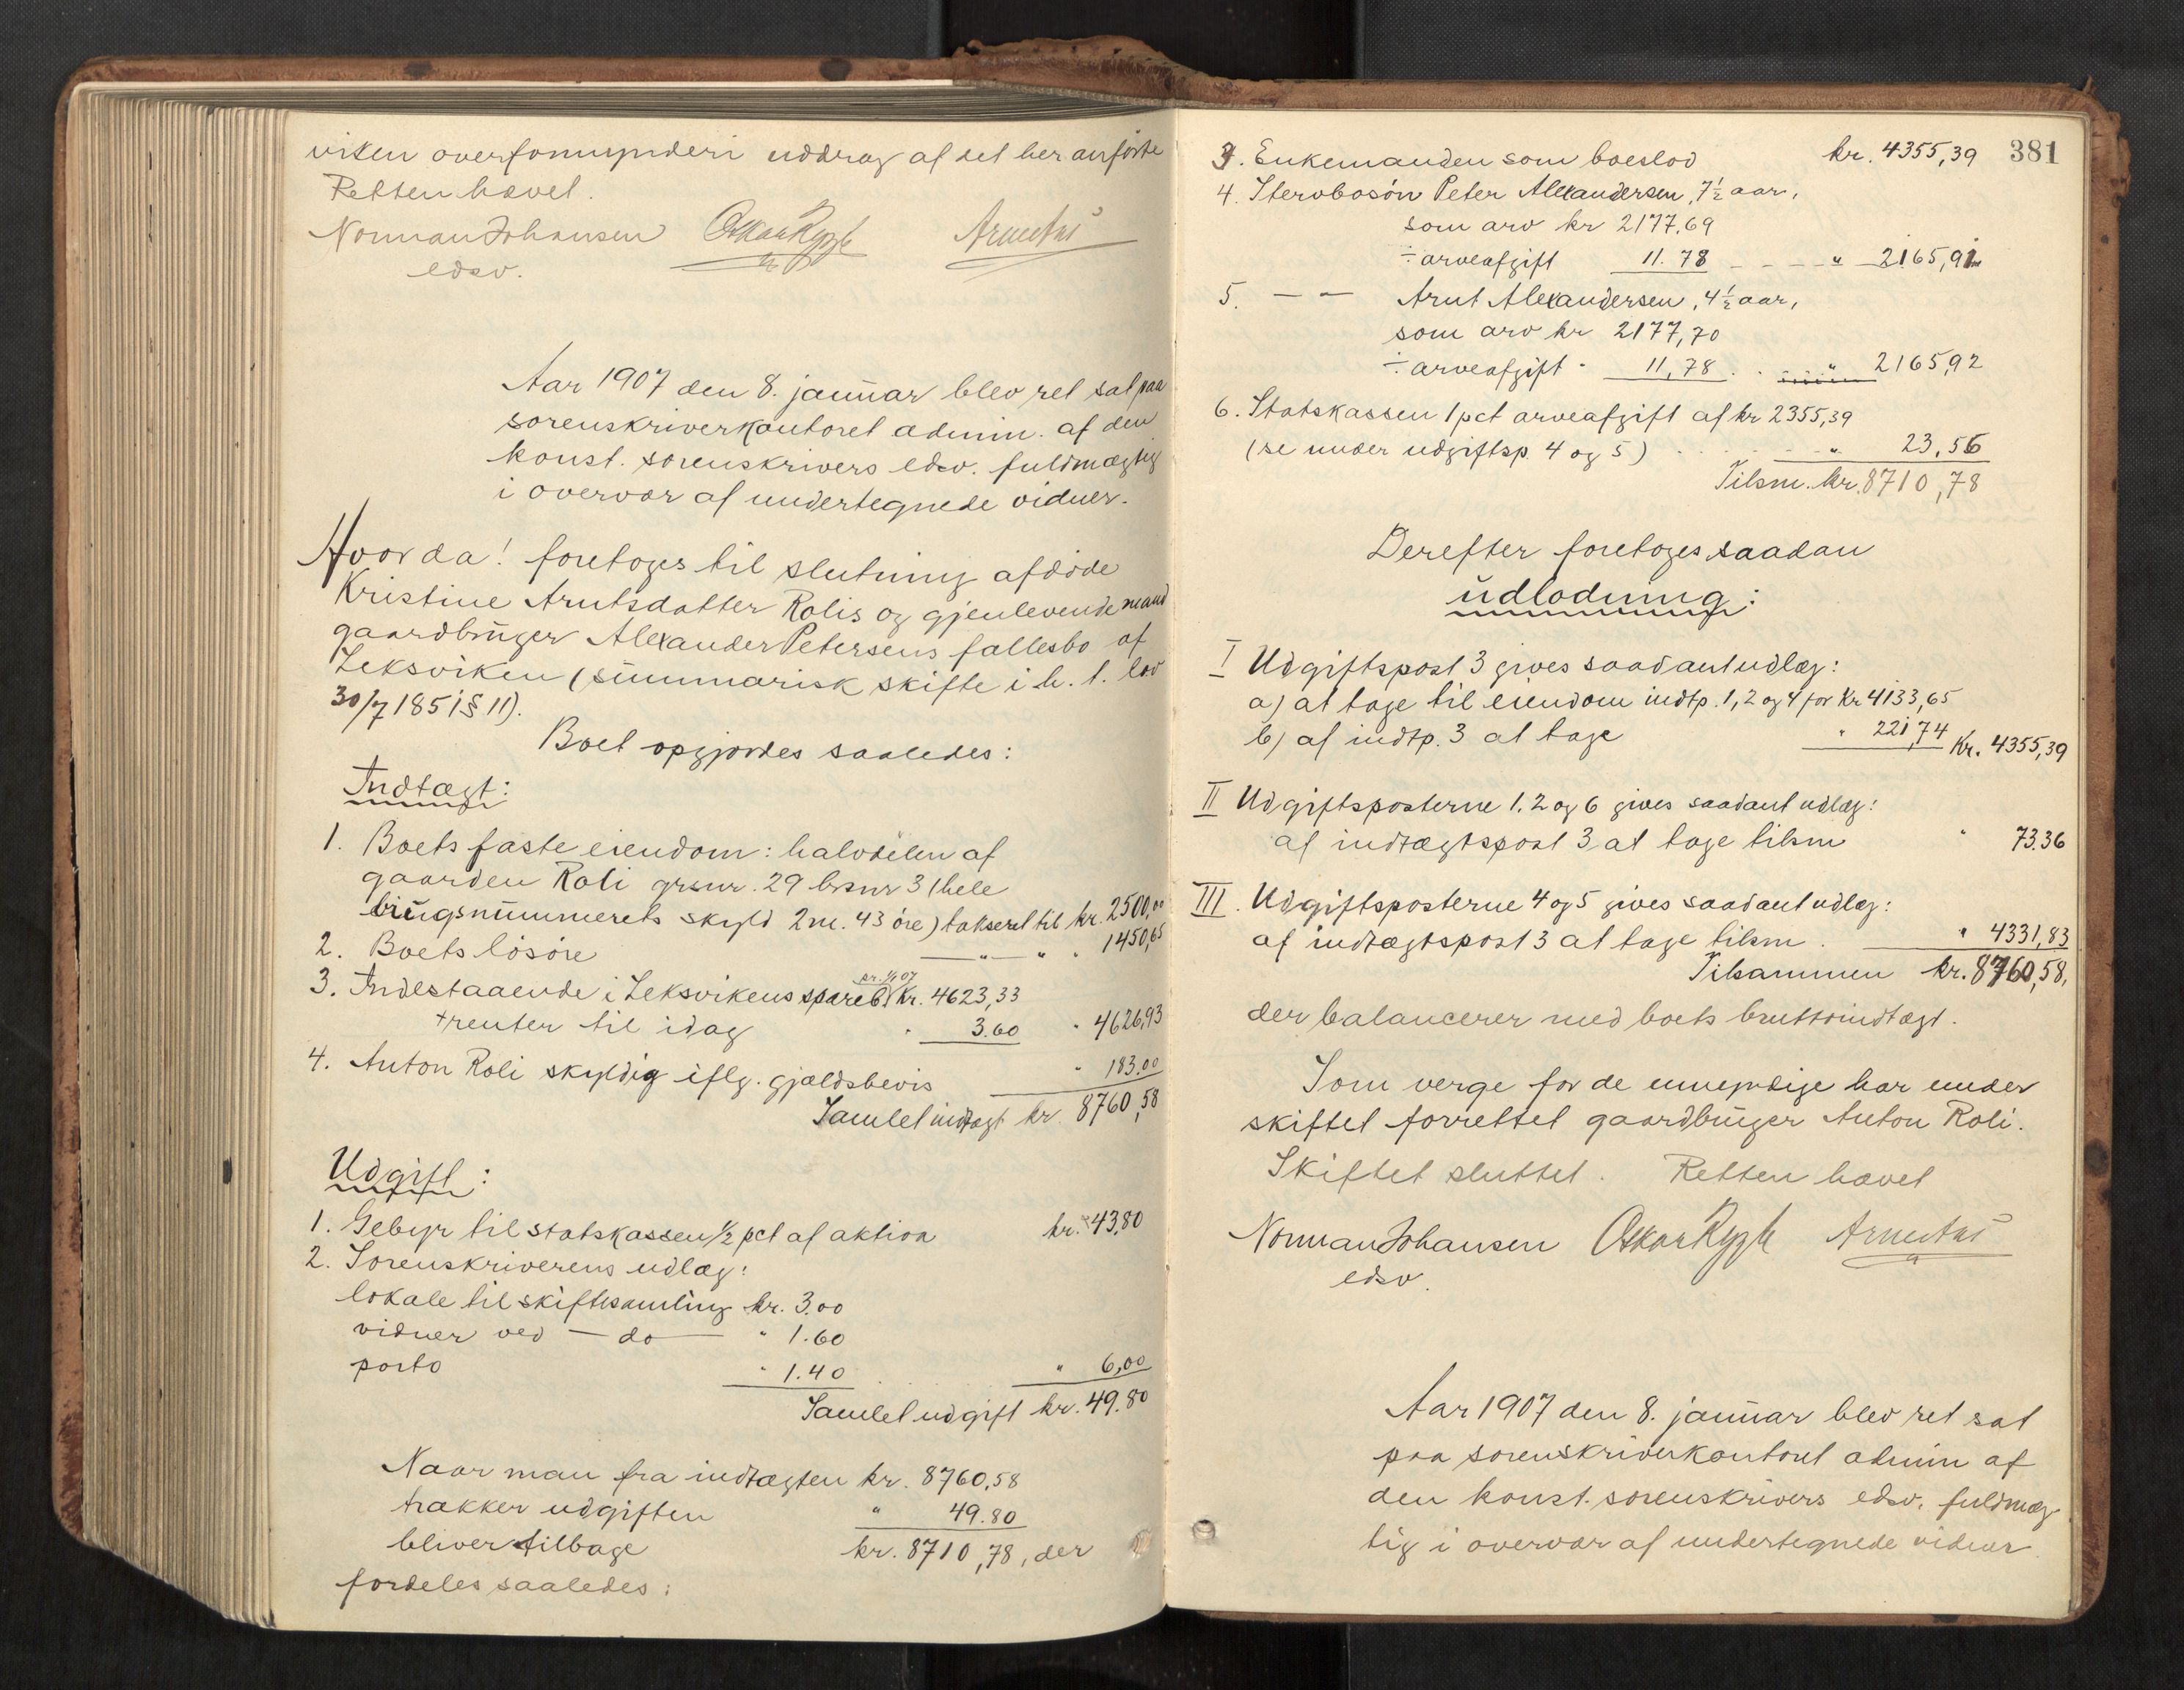 viken overformynderi uddrag af det her anførte
Retten hævet.
Norman Johansen Oskar Rygh
edsv.
Aar 1907 den 8. januar blev ret sat paa
sorenskriverkontoret admin. af den
konst. sorenskrivers edsv. fuldmægtig
i overvær af undertegnede vidner.
Hvor da! foretoges til slutning afdøde
Kristine Arntsdatter Rolis og gjenlevende mand
gaardbruger Alexander Petersens fællesbo af
Leksviken (summarisk skifte i h. t. lov
30/7 1851 § 11).
Boet opgjordes saaledes:
Indtægt:
1. Boets faste eiendom: halvdelen af
gaarden Roli grsnr. 29 brsnr 3 (hele
brugsnummerets skyld 2 m. 43 øre) takseret til kr. 2500,00
2. Boets løsøre — " — " " 1450,65
3. Indestaaende i Leksvikens spareb. pr. 1/1 07 kr. 4623,33
+ renter til idag " 3.60 " 4626,93
4. Anton Roli skyldig iflg. gjældsbevis " 183.00
Samlet indtægt kr. 8760,58
Udgift:
1. Gebyr til statskassen 1/2 pct af aktiva kr. 43,80
2. Sorenskriverens udlæg:
lokale til skiftesamling kr. 3.00
vidner ved — do — " 1.60
porto " 1.40 " 6,00
Samlet udgift kr. 49.80
Naar man fra indtægten kr. 8760,58
trækker udgiften " 49.80
bliver tilbage kr. 8710,78, der
fordeles saaledes:
381
3. Enkemanden som boeslod kr. 4355,39
4. Stervbosøn Peter Alexandersen, 7½ aar,
som arv kr 2177,69
÷ arveafgift 11.78 - - - " 2165,91
5. — — Arnt Alexandersen, 4½ aar,
som arv kr 2177,70
÷ arveafgift " 11,78 . . " 2165,92
6. Statskassen 1 pct arveafgift af kr 2355,39
(se under udgiftsp. 4 og 5) . . . . " 23,56
Tilsm. kr. 8710,78
Derefter foretoges saadan
udlodning:
I Udgiftspost 3 gives saadant udlæg:
a) at tage til eiendom indtp. 1, 2 og 4 for Kr 4133,65
b) af indtp. 3 at tage " 221,74 Kr. 4355,39
II Udgiftsposterne 1, 2 og 6 gives saadant udlæg:
af indtægtspost 3 at tage tilsm " 73.36
III. Udgiftsposterne 4 og 5 gives saadant udlæg:
af indtægtspost 3 at tage tilsm . " 4331,83
Tilsammen kr. 8760,58,
der balancerer med boets bruttoindtægt.
Som verge for de umyndige har under
skiftet forrettet gaardbruger Anton Roli.
Skiftet sluttet. Retten hævet
Norman Johansen Oskar Rygh
edsv.
Aar 1907 den 8. januar blev ret sat
paa sorenskriverkontoret admin af
den konst. sorenskrivers edsv. fuldmæg-
tig i overvær af undertegnede vidner